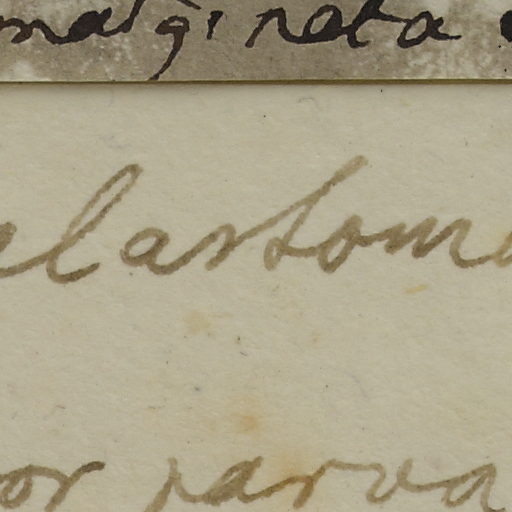 marginata
elastoma
or parva